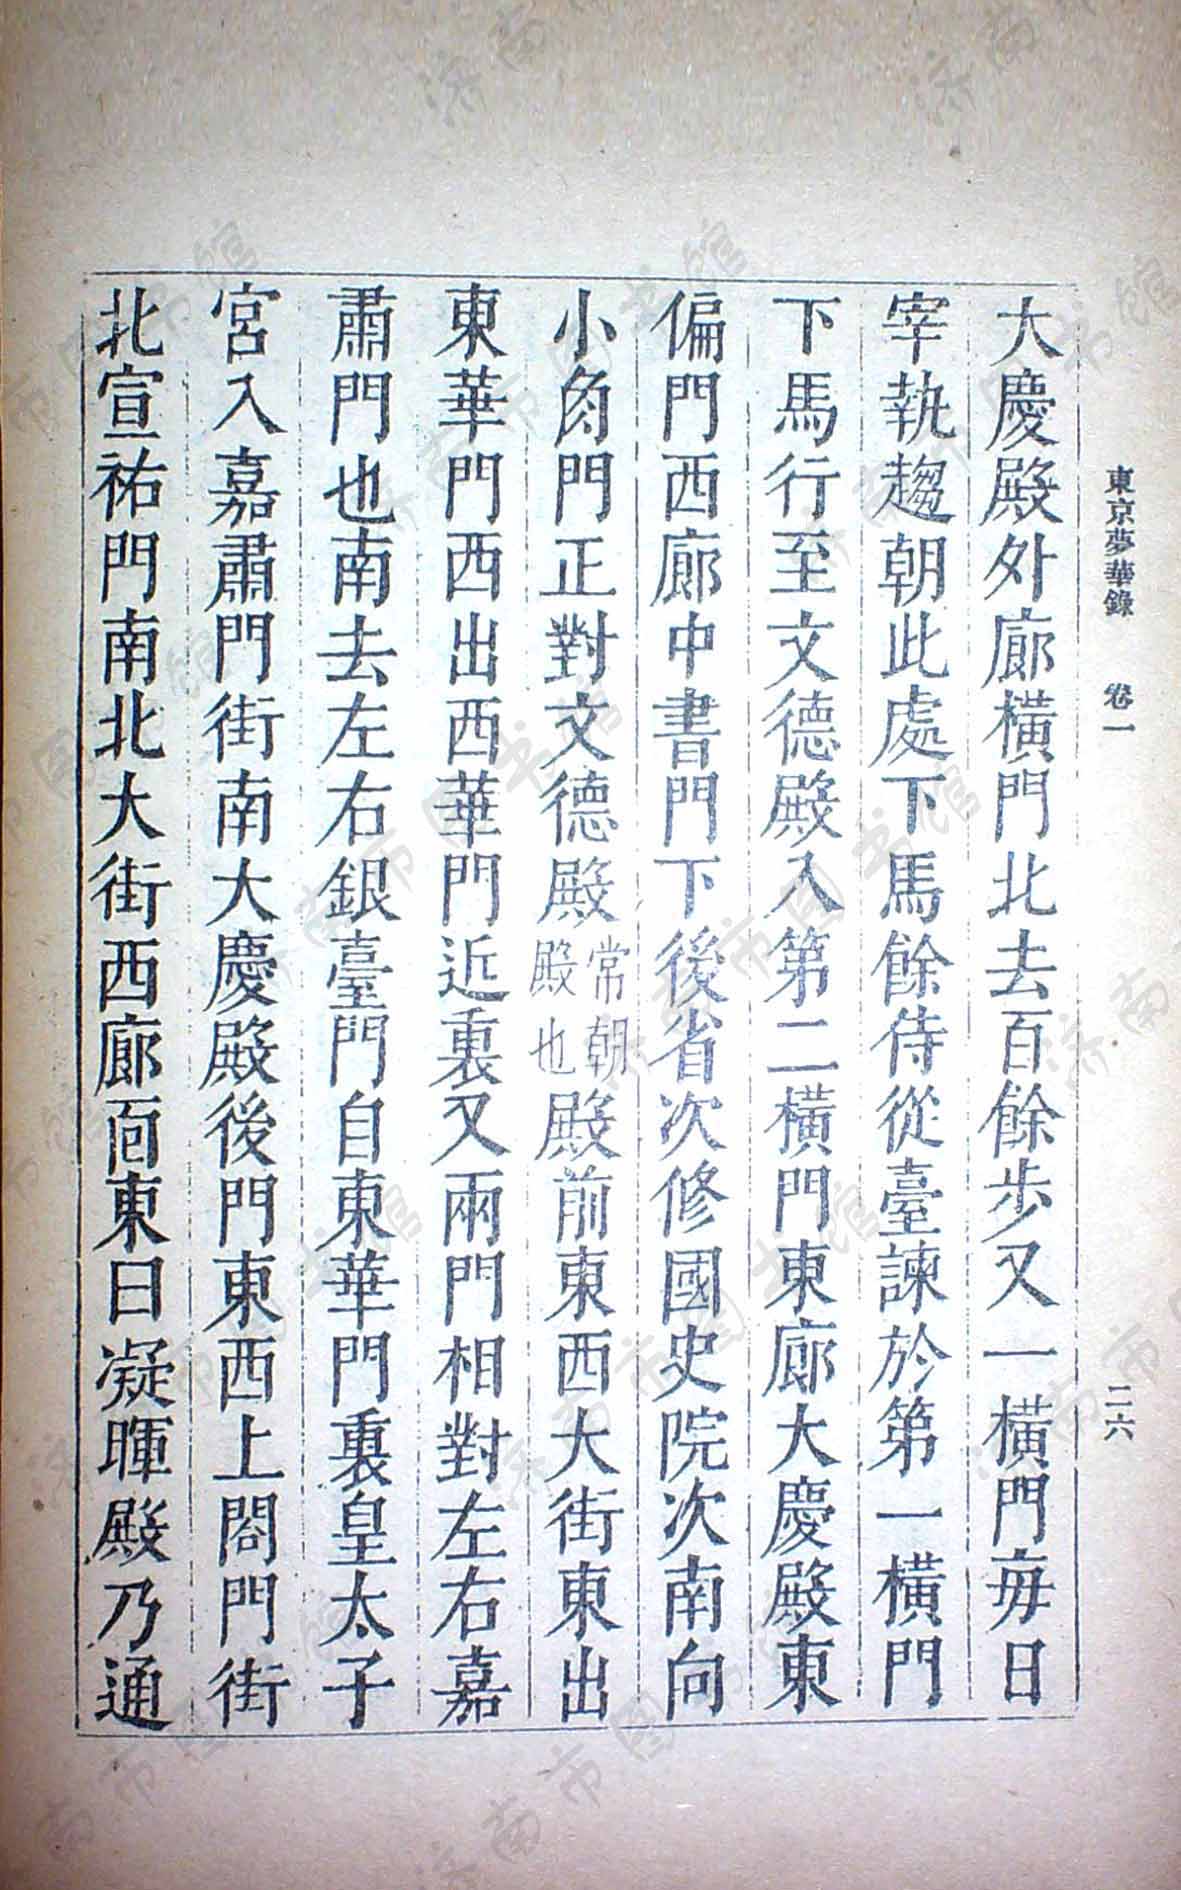 東京夢華錄 卷一 二六
大慶殿外廊橫門北去百餘步又一橫門每日
宰執趨朝此處下馬餘侍從臺諫於第一橫門
下馬行至文德殿入第二橫門東廊大慶殿東
偏門西廊中書門下後省次修國史院次南向
小角門正對文德殿常朝殿也殿前東西大街東出
東華門西出西華門近裏又兩門相對左右嘉
肅門也南去左右銀臺門自東華門裏皇太子
宮入嘉肅門街南大慶殿後門東西上閤門街
北宣祐門南北大街西廊面東曰凝暉殿乃通
济南市图书馆